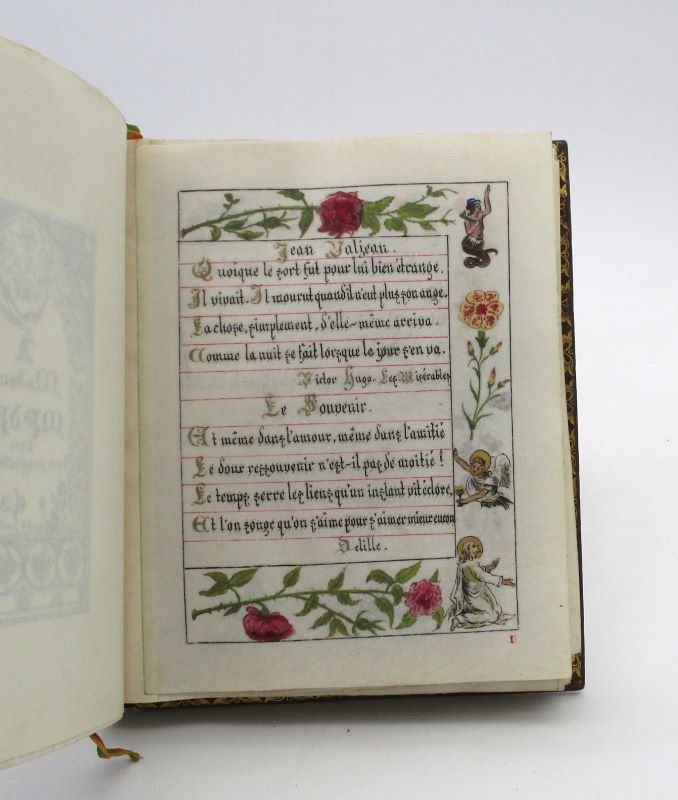 Jean Valjean.
Quoique le sort fut pour lui bien étrange.
Il vivait. Il mourut quand il n'eut plus son ange.
La chose, simplement, d'elle-même arriva.
Comme la nuit se fait lorsque le jour s'en va.
Victor Hugo. Les Misérables
Le Souvenir.
Et même dans l'amour, même dans l'amitié
Le doux ressouvenir n'est-il pas de moitié!
Le temps serre les liens qu'un instant vit éclore,
Et l'on songe qu'on s'aime pour s'aimer mieux encor
Delille.
1